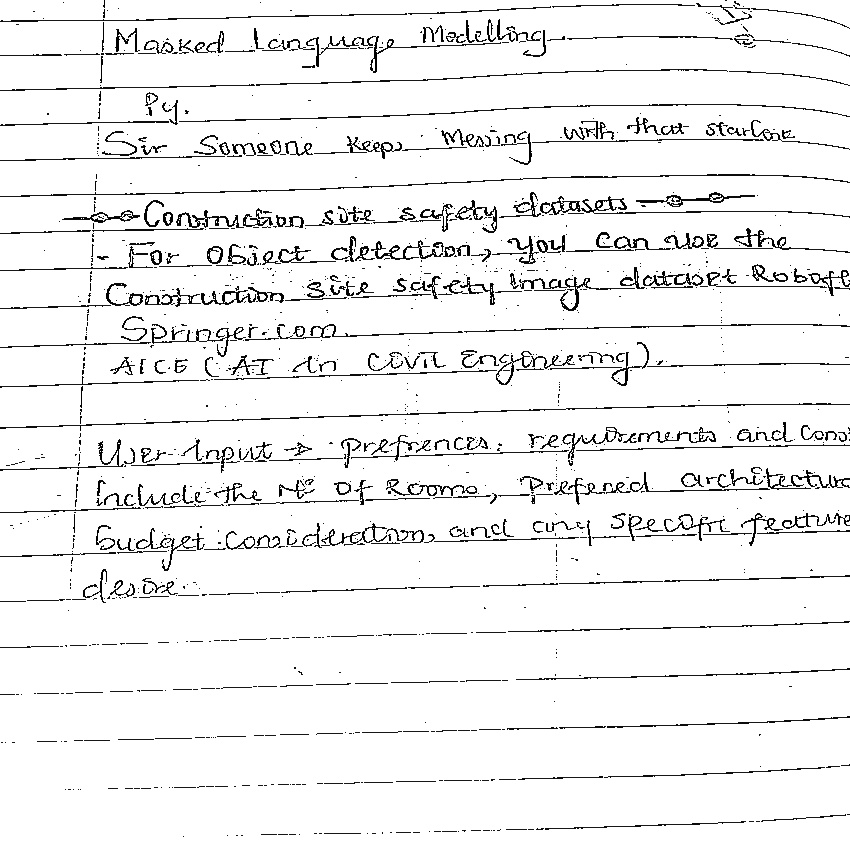 Masked Language Modelling.
Py.
Sir Someone keeps Messing with that starlink
Construction site safety datasets
- For Object detection, you can use the
Construction site safety Image dataset Robofl
Springer.com.
AICE (AI In Civil Engineering).
User Input → prefrences, requirements and Cons
Include the Nº Of Rooms, preferred architectura
budget consideration, and any specific feature
desire.